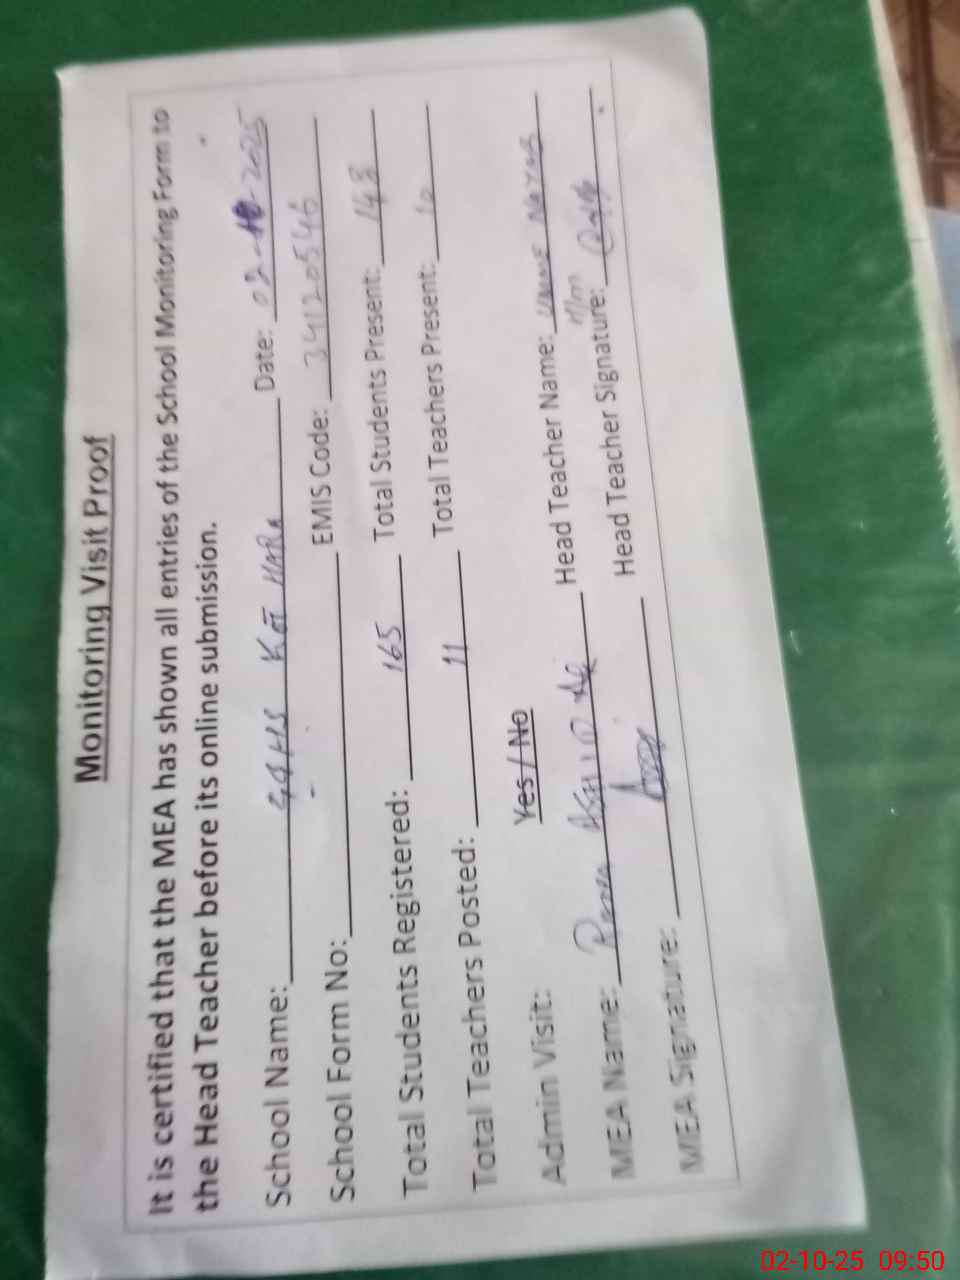 Monitoring Visit Proof
It is certified that the MEA has shown all entries of the School Monitoring Form to
the Head Teacher before its online submission.
School Name: GGHS Kot HARA Date: 02-10-2025
School Form No: EMIS Code: 34120546
Total Students Registered: 165 Total Students Present: 148
Total Teachers Posted: 11 Total Teachers Present: 10
Admin Visit: Yes / No
MEA Name: Head Teacher Name:
MEA Signature: Head Teacher Signature:
02-10-25 09:50